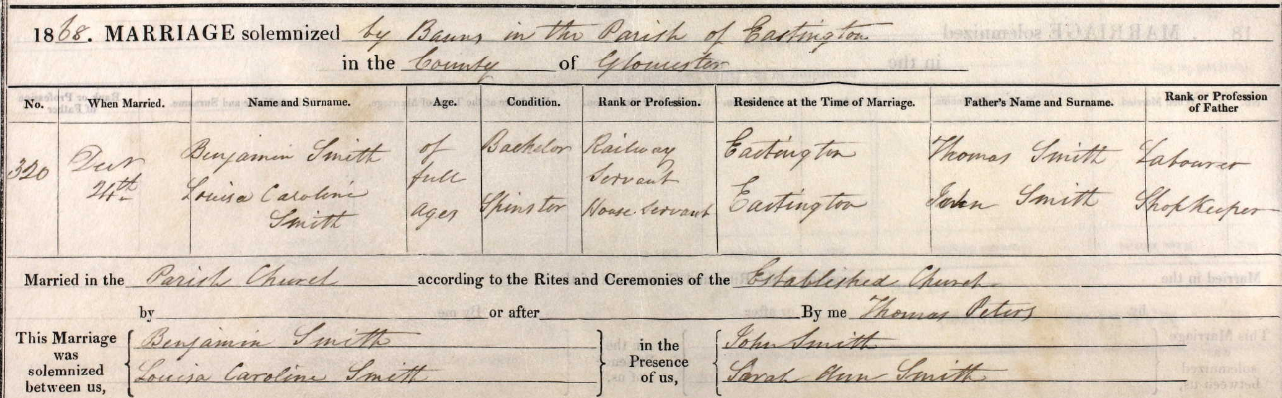 1868. MARRIAGE solemnized by Banns in the Parish of Eastington
in the County of Gloucester
No. When Married. Name and Surname. Age. Condition. Rank or Profession. Residence at the Time of Marriage. Father's Name and Surname. Rank or Profession of Father
320 Decr 24th Benjamin Smith of full ages Bachelor Railway Servant Eastington Thomas Smith Labourer
Louisa Caroline Smith Spinster House Servant Eastington John Smith Shopkeeper
Married in the Parish Church according to the Rites and Ceremonies of the Established Church
by or after By me Thomas Peters
This Marriage was solemnized between us, Benjamin Smith in the Presence of us, John Smith
Louisa Caroline Smith Sarah Ann Smith